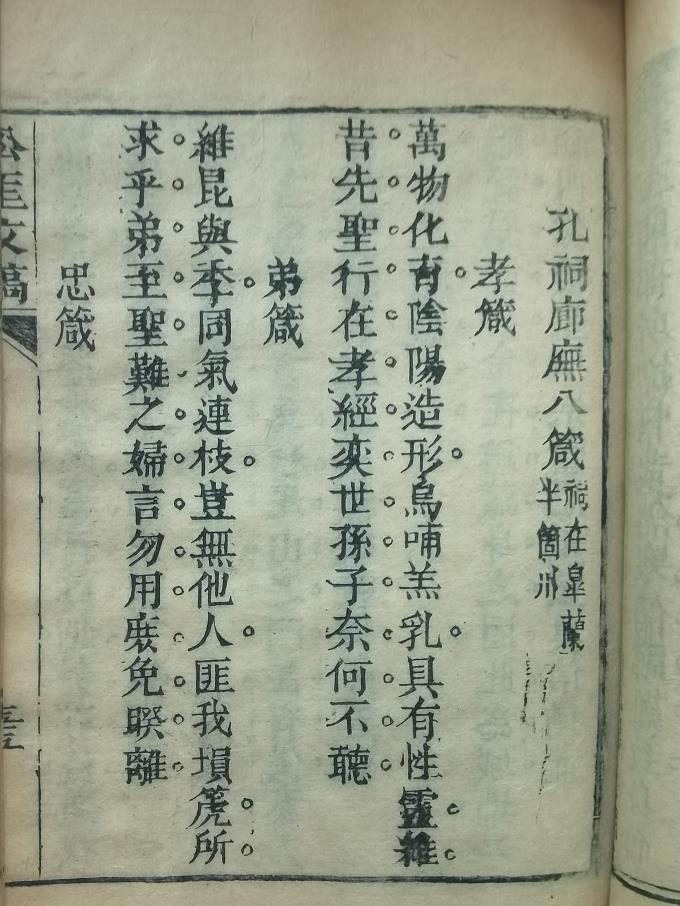 孔祠廊廡八箴祠在臯蘭半箇川
孝箴
萬物化育陰陽造形烏哺羔乳具有性靈維
昔先聖行在孝經奕世孫子奈何不聽
弟箴
維昆與季同氣連枝豈無他人匪我塤箎所
求乎弟至聖難之婦言勿用庻免睽離
忠箴
松厓文稿